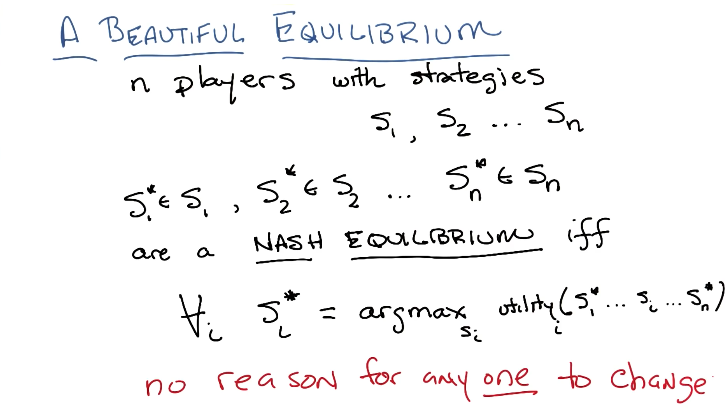 A BEAUTIFUL EQUILIBRIUM
n players with strategies
S₁, S₂ ... Sₙ
S₁* ∈ S₁, S₂* ∈ S₂ ... Sₙ* ∈ Sₙ
are a NASH EQUILIBRIUM iff
∀ᵢ Sᵢ* = argmax_sᵢ utilityᵢ(S₁* ... sᵢ ... Sₙ*)
no reason for any one to change